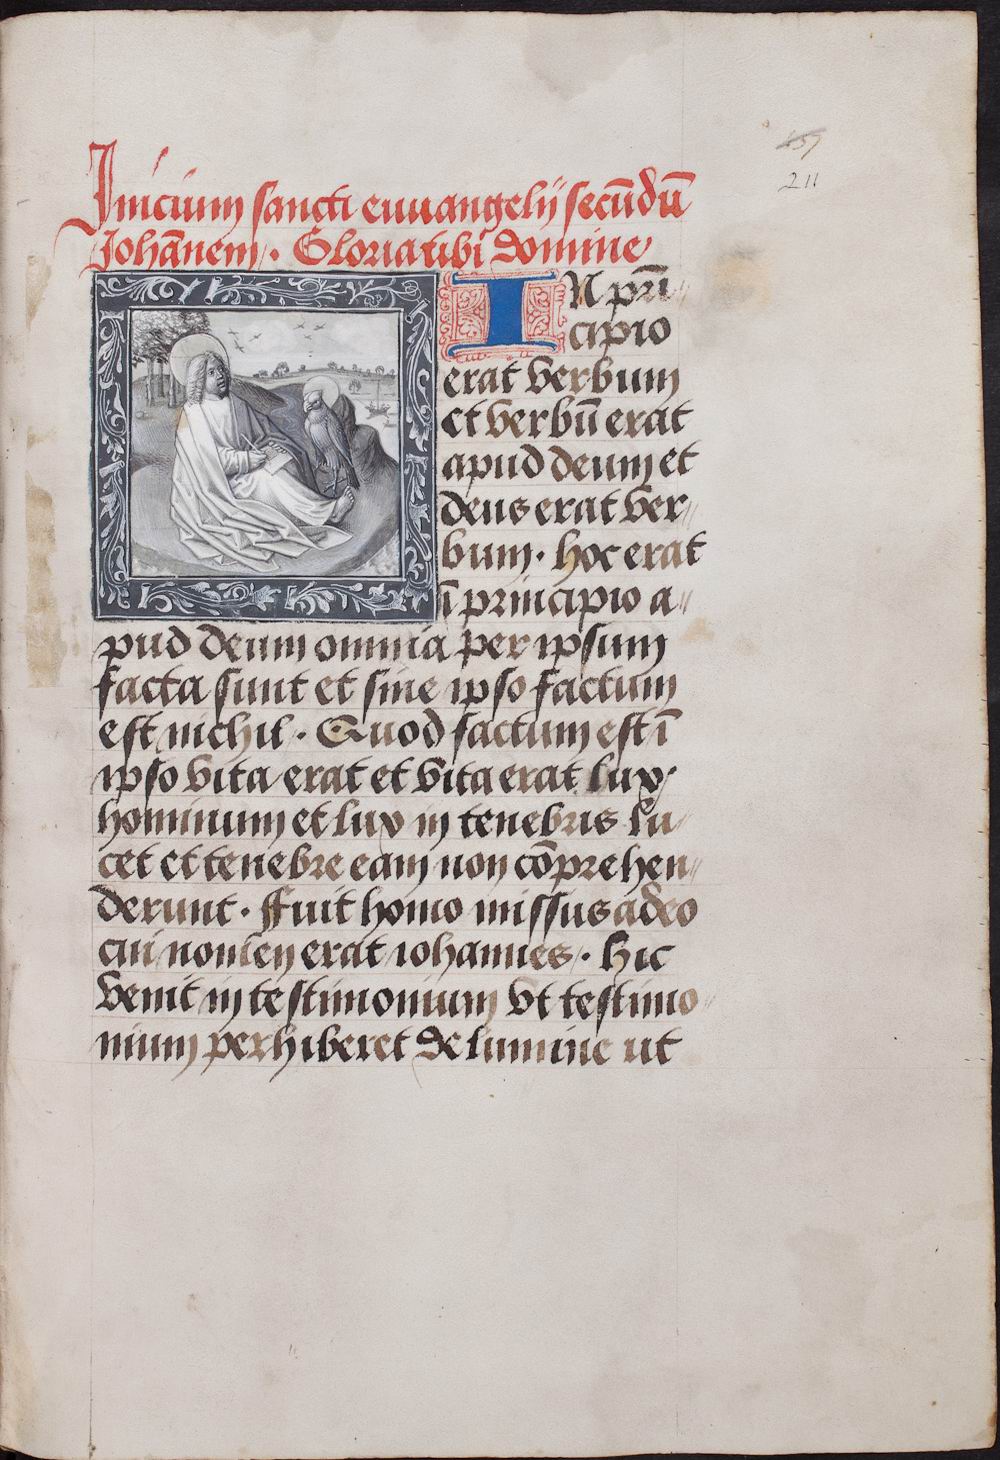 157
211
Inicium sancti euuangelij secūdū
Johānem · Gloria tibi domine
IN prī
cipio
erat verbum
et verbū erat
apud deum et
deus erat ver
bum · hoc erat
ī principio a
pud deum omnia per ipsum
facta sunt et sine ipso factum
est nichil · Quod factum est ī
ipso vita erat et vita erat lux
hominum et lux in tenebris lu
cet et tenebre eam non cōprehen
derunt · ffuit homo missus a deo
cui nomen erat iohannes · hic
venit in testimonium vt testimo
nium perhiberet de lumine ut